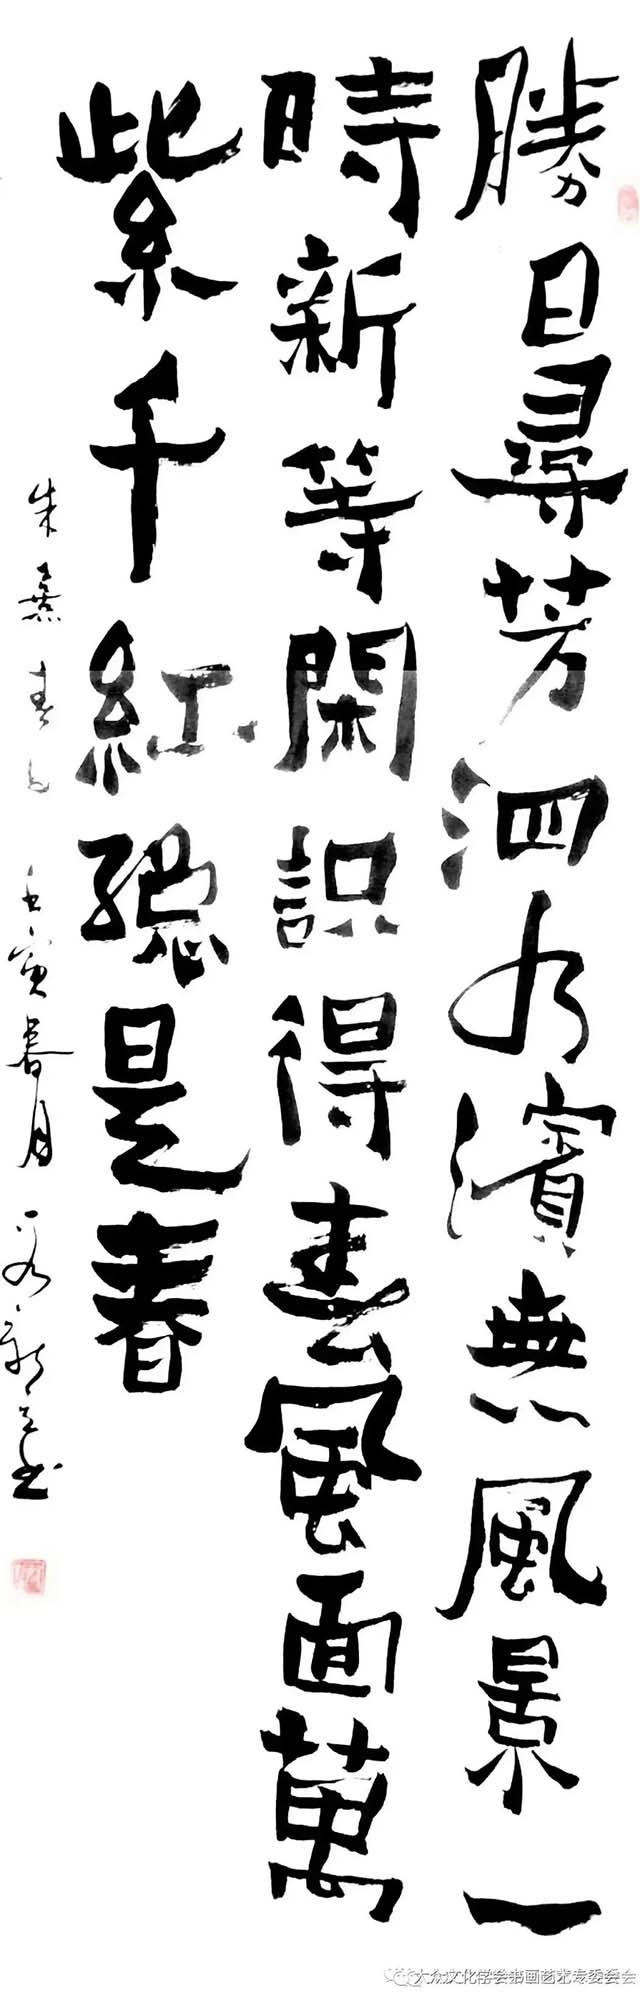 勝日尋芳泗水濱無風景一
時新等閑识得春風面萬
紫千紅總是春
朱熹春日 壬寅春月
大众文化学会书画艺术专委员会